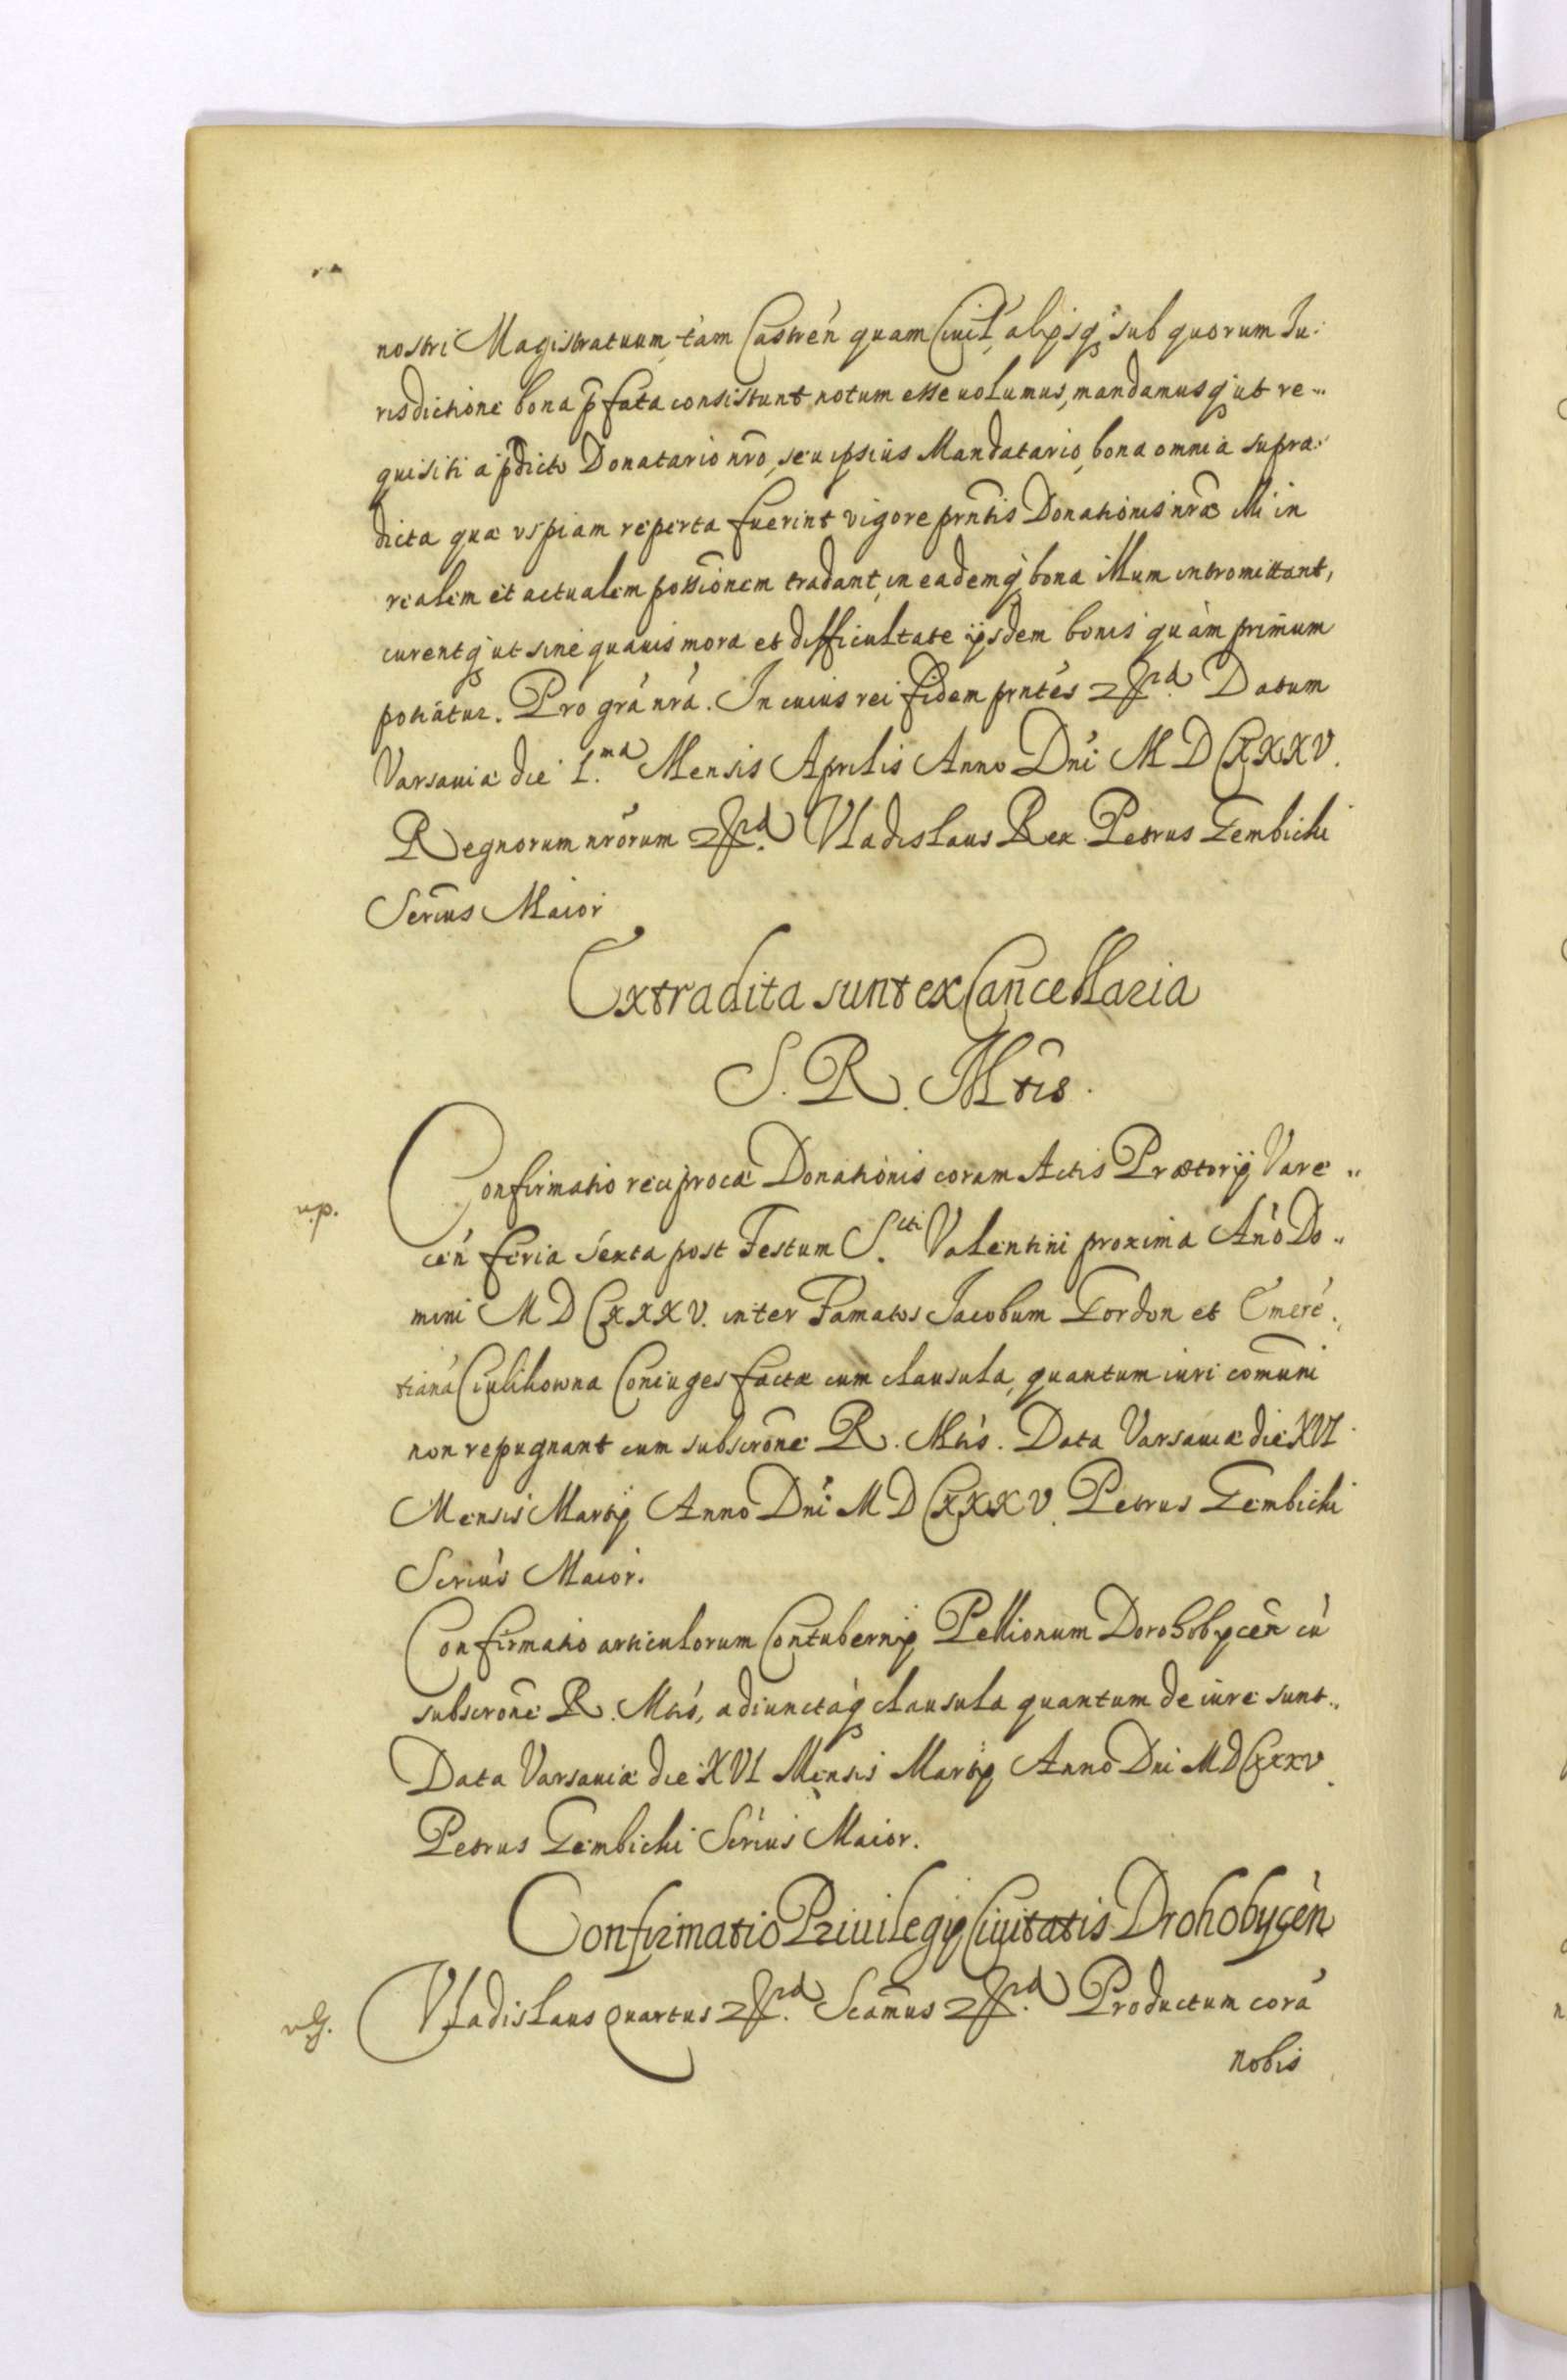 nostri Magistratuum, tàm Castrén quam Ciuil, alijsq; sub quorum Iu:
risdictione bona p̄fata consistunt notum esse uolumus, mandamusq; ut re-
quisiti a p̄dicto Donatario nr̄o, seu ipsius Mandatario, bona omnia supra:
dicta quæ vspiam reperta fuerint vigore prn̄tis Donationis nr̄æ illi in
realem et actualem possi̅onem tradant, in eademq; bona illum intromittant,
curentq; ut sine quauis mora et difficultate ijsdem bonis quàm primum
potiátur. Pro gr̄a nr̄a. In cuius rei fidem prn̄tes Datum
Varsauiæ die 1.ma Mensis Aprilis Anno Dn̄i MDCXXXV.
Regnorum nr̄orum Vladislaus Rex Petrus Gembicki
Secr̄ius Maior
Extradita sunt ex Cancellaria
S. R. Mtis.
v.p.
Confirmatio reciprocæ Donationis coram Actis Prætorij Vare-
cén feria sexta post Festum S.cti Valentini proxima An̄o Do-
mini MDCXXXV. inter Famatos Jacobum Gordon et Emeré-
tianá Ciulikowna Coniuges factæ cum clausula, quantum iuri com̄uni
non repugnant cum subscr̄one R. Mtis. Data Varsauiæ die XVI
Mensis Martij Anno Dn̄i MDCXXXV. Petrus Gembicki
Secrius Maior.
Confirmatio articulorum Contubernij Pellionum Dorohobycen̄ cú
subscrōne R. Mtis, adiunctaq; clausula quantum de iure sunt.
Data Varsauiæ die XVI Mensis Martij Anno Dni MDCXXXV.
Petrus Gembicki Secrius Maior.
Confirmatio Priuilegij Ciuitatis Drohobycèn
Vladislaus Quartus Scam̄us Productum corá
nobis